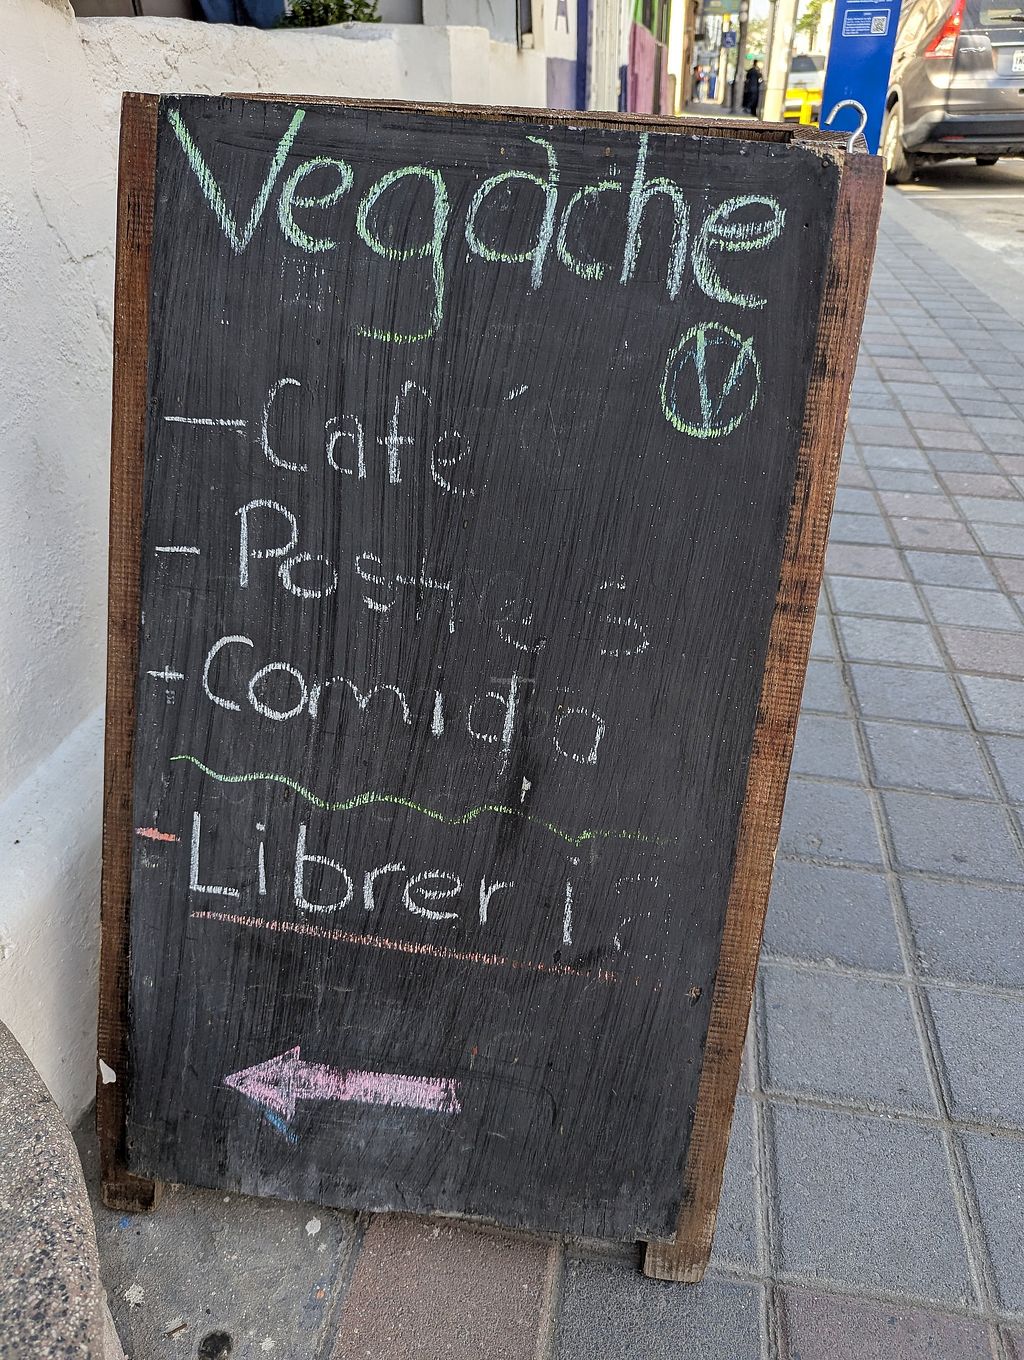 Vegache
V
- Café
- Postres
+ Comida
- Libreria